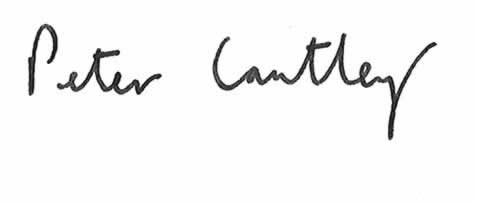 Peter Cantley